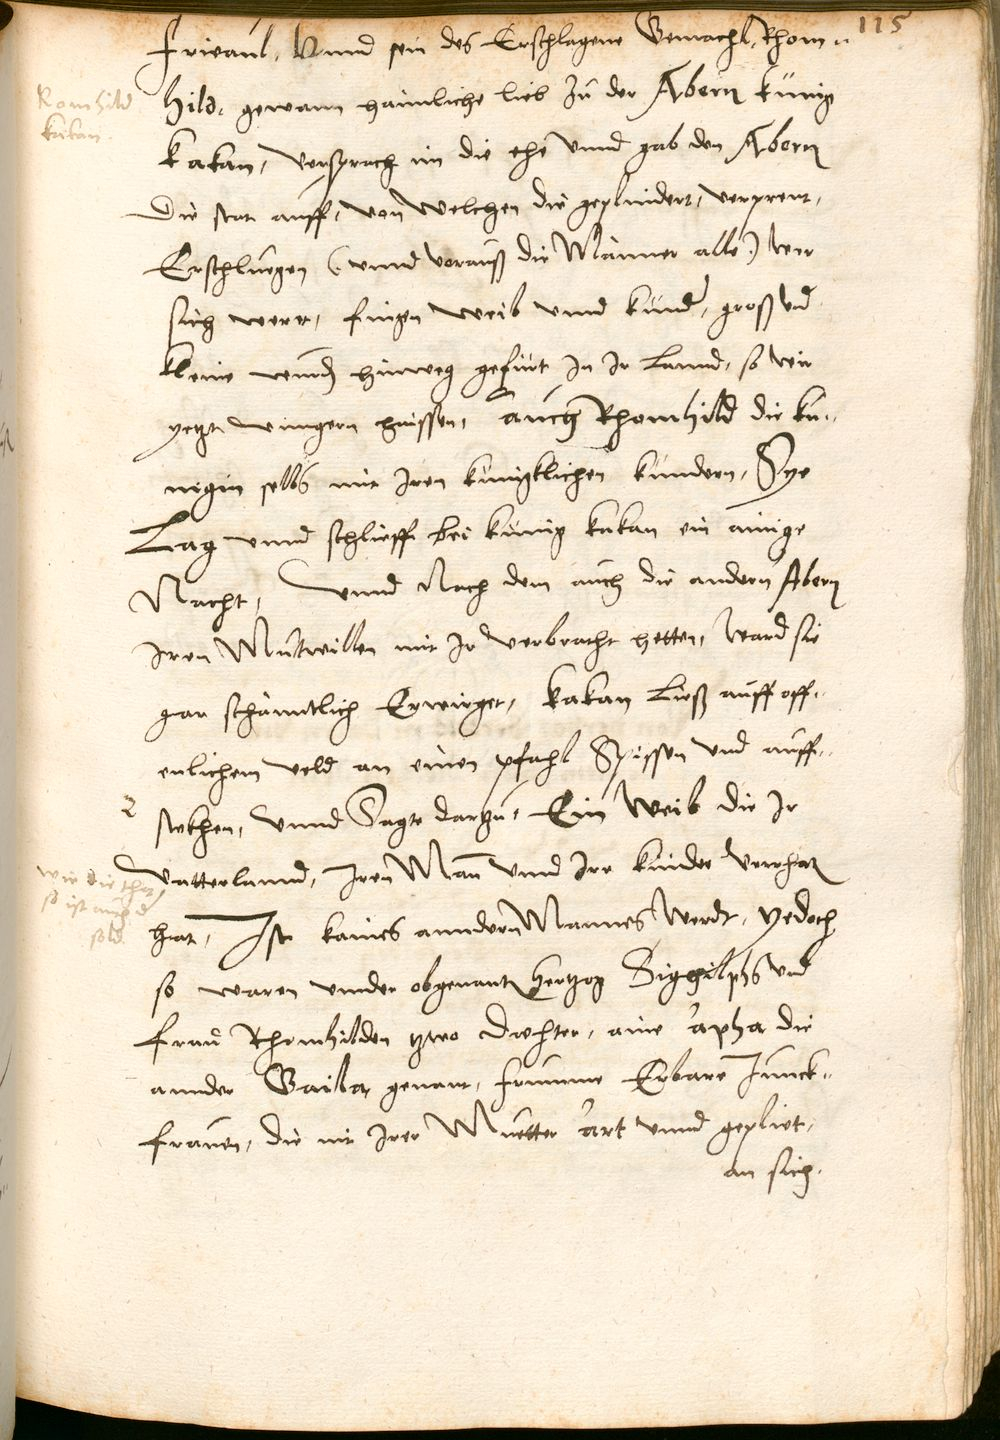 115
friaul, Vnnd sein des Erschlagene Gemachl, Rhom-
hild, gewann haimliche lieb zu der Abern künig
kakan, versprach im die ehe vnnd gab den Abern
Die stat auff, von welchen die geplindert, verprent,
Erschluegen (vnnd vorauß die Männer alle) wer
sich werr, fingen weib vnnd kinder, groß vnd
kleine wurden hinweg gefürt in Ir Lannd, so wir
yetzt vngern haissen, auch Rhomhild die kü-
nigin selbs mit Iren künigklichen kindern, Sye
Lag vnnd schlieff bei künig kakan ein ainige
Nacht, vnnd Nach dem auch die andern Abern
Iren Mutwillen mit Ir verbracht hetten, ward sie
gar schäntlich Erwirget, kakan Ließ auff off-
enlichem veld an einen pfahl Spissen vnd auff-
stekhen, vnnd Sagte dartzu, Ein Weib die Ir
Vatterlannd, Iren Man vnnd Ire kinder verrhaten
hat, Ist kaines anndern Mannes Werdt, yedoch
so waren vnder obgenanten Hertzog Sigghilphs vnd
frau Rhomhilden zwo Dochter, aine apha die
annder Gaila, genant, frumme Erbare Junck-
frauen, die nit Irer Muetter art vnnd geplüet,
an sich.
Romhild
kakan.
wie die that
so ist auch d
sold.